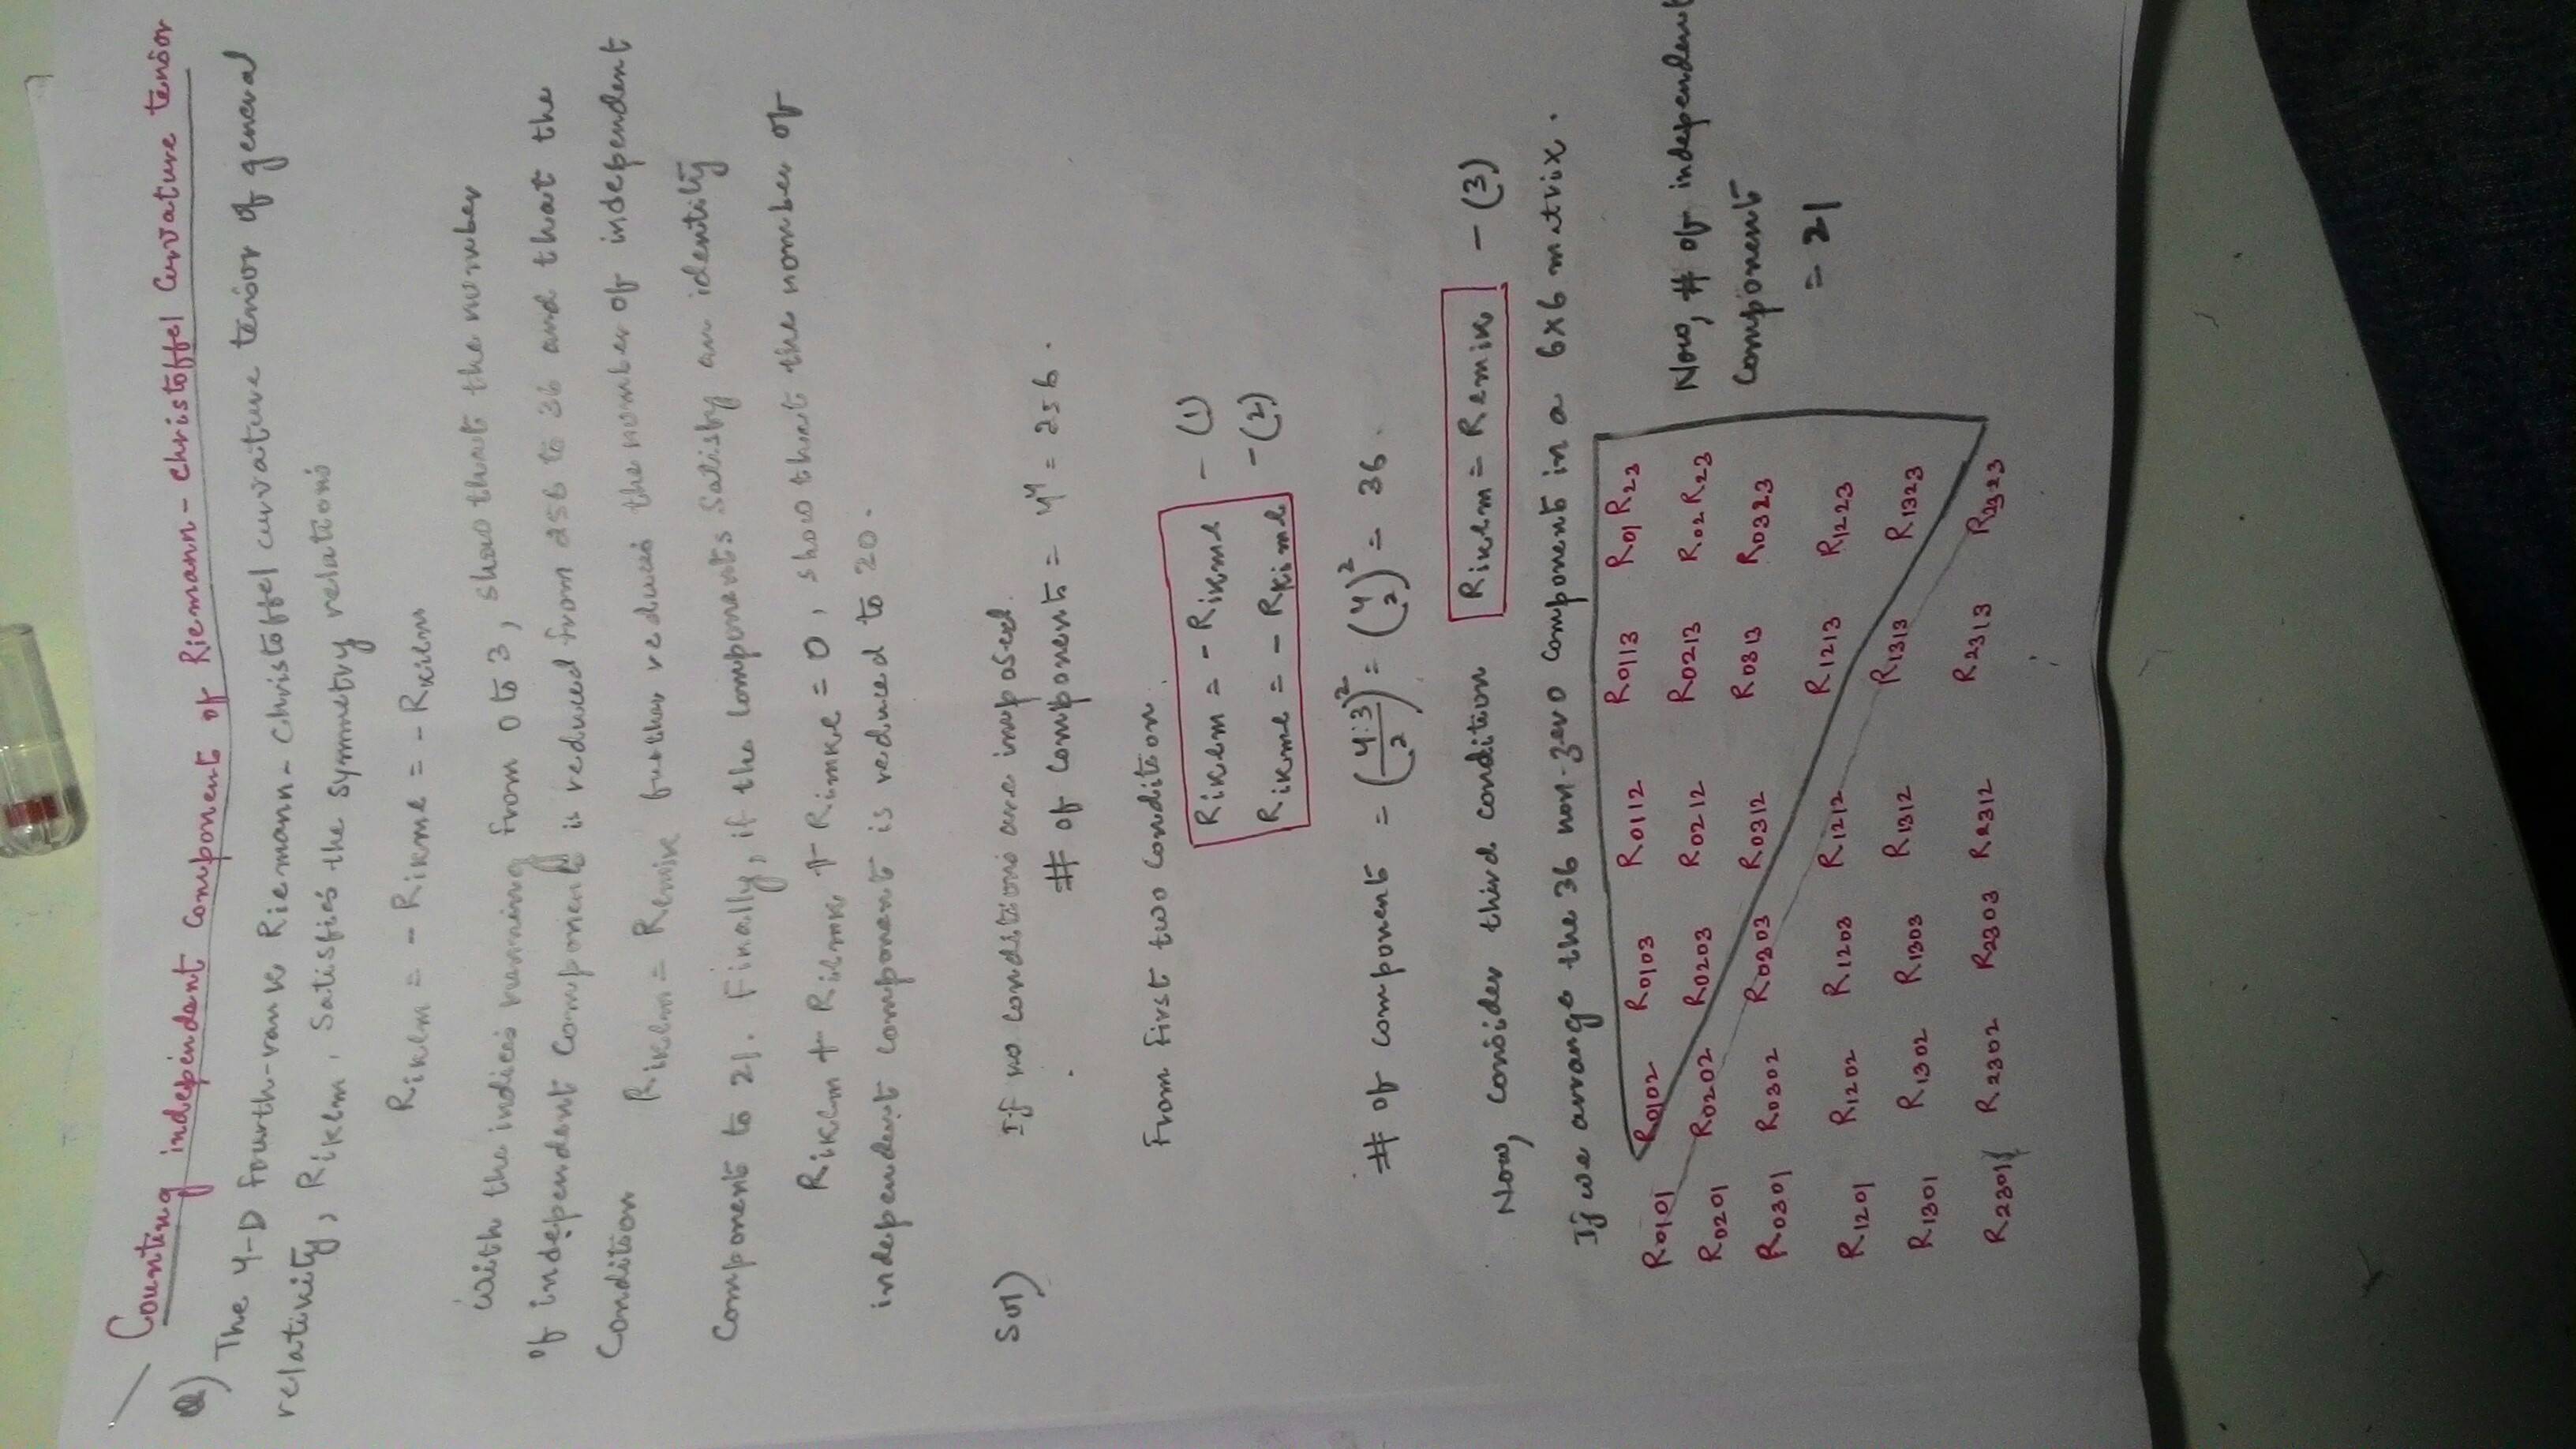 Counting independent component of Riemann-Christoffel Curvature tensor
Q) The 4-D fourth-rank Riemann-Christoffel curvature tensor of general
relativity, Riklm, Satisfies the symmetry relations
Riklm = - Rikml = - Rkilm
With the indices running from 0 to 3, show that the number
of independent components is reduced from 256 to 36 and that the
Condition
Riklm = Rlmik further reduces the number of independent
Component to 21. Finally, if the components Satisfy an identity
Riklm + Rilmk + Rimkl = 0, show that the number of
independent component is reduced to 20.
Sol)
If no conditions are imposed.
# of component = 4⁴ = 256.
From first two Condition
Riklm = - Rikml - (1)
Rikml = - Rkiml - (2)
# of component = (4.3/2)² = (4 2)² = 36.
Now, consider third condition Riklm = Rlmik - (3)
If we arrange the 36 non-zero component in a 6x6 matrix.
R0101 R0102 R0103 R0112 R0113 R01R23
R0201 R0202 R0203 R0212 R0213 R02R23
R0301 R0302 R0303 R0312 R0313 R0323
R1201 R1202 R1203 R1212 R1213 R1223
R1301 R1302 R1303 R1312 R1313 R1323
R2301 R2302 R2303 R2312 R2313 R2323
Now, # of independent
Component
= 21